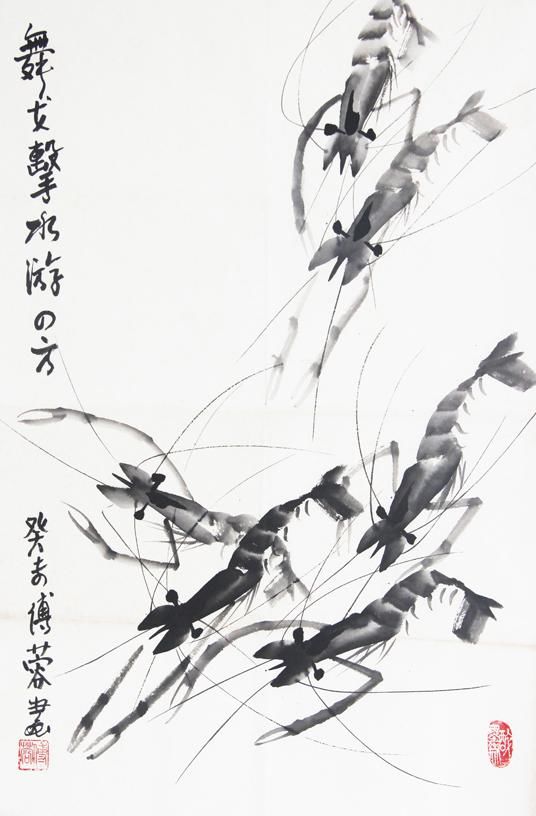 舞戈擊水游四方
癸未傅蓉畫